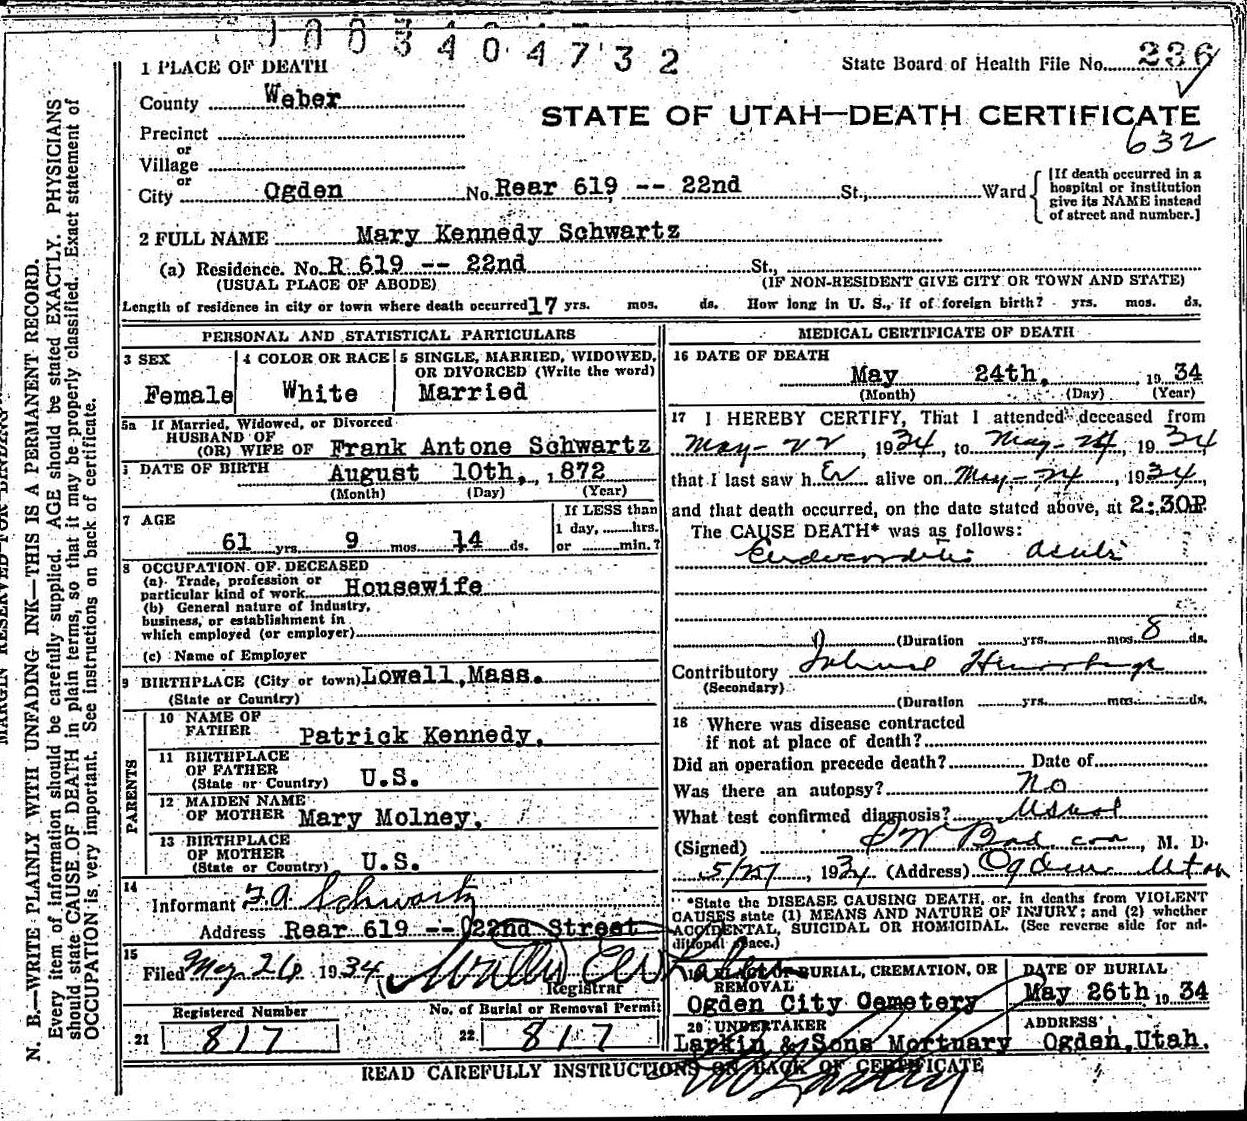 1003404732
State Board of Health File No. 236
1 PLACE OF DEATH
County Weber
STATE OF UTAH—DEATH CERTIFICATE
632
Precinct
or
Village
or
City Ogden No. Rear 619 -- 22nd St., Ward
[If death occurred in a hospital or institution give its NAME instead of street and number.]
2 FULL NAME Mary Kennedy Schwartz
(a) Residence. No. R 619 -- 22nd St.,
(USUAL PLACE OF ABODE) (IF NON-RESIDENT GIVE CITY OR TOWN AND STATE)
Length of residence in city or town where death occurred 17 yrs. mos. ds. How long in U. S., if of foreign birth? yrs. mos. ds.
PERSONAL AND STATISTICAL PARTICULARS
3 SEX
Female
4 COLOR OR RACE
White
5 SINGLE, MARRIED, WIDOWED,
OR DIVORCED (Write the word)
Married
5a If Married, Widowed, or Divorced
HUSBAND OF
(OR) WIFE OF Frank Antone Schwartz
DATE OF BIRTH August 10th, 1872
(Month) (Day) (Year)
7 AGE
61 yrs. 9 mos. 14 ds.
If LESS than
1 day, hrs.
or min.?
8 OCCUPATION OF DECEASED
(a) Trade, profession or
particular kind of work Housewife
(b) General nature of industry,
business, or establishment in
which employed (or employer)
(c) Name of Employer
9 BIRTHPLACE (City or town) Lowell, Mass.
(State or Country)
PARENTS
10 NAME OF
FATHER Patrick Kennedy.
11 BIRTHPLACE
OF FATHER
(State or Country) U.S.
12 MAIDEN NAME
OF MOTHER Mary Molney.
13 BIRTHPLACE
OF MOTHER
(State or Country) U.S.
14
Informant F. A. Schwartz
Address Rear 619 -- 22nd Street
15
Filed May 26 1934
Registrar
Registered Number
21 817
No. of Burial or Removal Permit
22 817
MEDICAL CERTIFICATE OF DEATH
16 DATE OF DEATH
May 24th, 1934
(Month) (Day) (Year)
17 I HEREBY CERTIFY, That I attended deceased from
May - 22, 1934, to May - 24, 1934
that I last saw h er alive on May - 24, 1934,
and that death occurred, on the date stated above, at 2:30P.
The CAUSE DEATH* was as follows:
Endocarditis
(Duration yrs. mos. 8 ds.
Contributory Hemorrhage
(Secondary)
(Duration yrs. mos. ds.
18 Where was disease contracted
if not at place of death?
Did an operation precede death? Date of
Was there an autopsy? No
What test confirmed diagnosis? Usual
(Signed) , M. D.
5/27, 1934 (Address) Ogden Utah
*State the DISEASE CAUSING DEATH, or, in deaths from VIOLENT
CAUSES state (1) MEANS AND NATURE OF INJURY; and (2) whether
ACCIDENTAL, SUICIDAL OR HOMICIDAL. (See reverse side for ad-
ditional space.)
19 PLACE OF BURIAL, CREMATION, OR
REMOVAL
Ogden City Cemetery
DATE OF BURIAL
May 26th 1934
20 UNDERTAKER
Larkin & Sons Mortuary
ADDRESS
Ogden, Utah.
READ CAREFULLY INSTRUCTIONS ON BACK OF CERTIFICATE
MARGIN RESERVED FOR BINDING
N. B.—WRITE PLAINLY WITH UNFADING INK—THIS IS A PERMANENT RECORD.
Every item of information should be carefully supplied. AGE should be stated EXACTLY. PHYSICIANS
should state CAUSE OF DEATH in plain terms, so that it may be properly classified. Exact statement of
OCCUPATION is very important. See instructions on back of certificate.